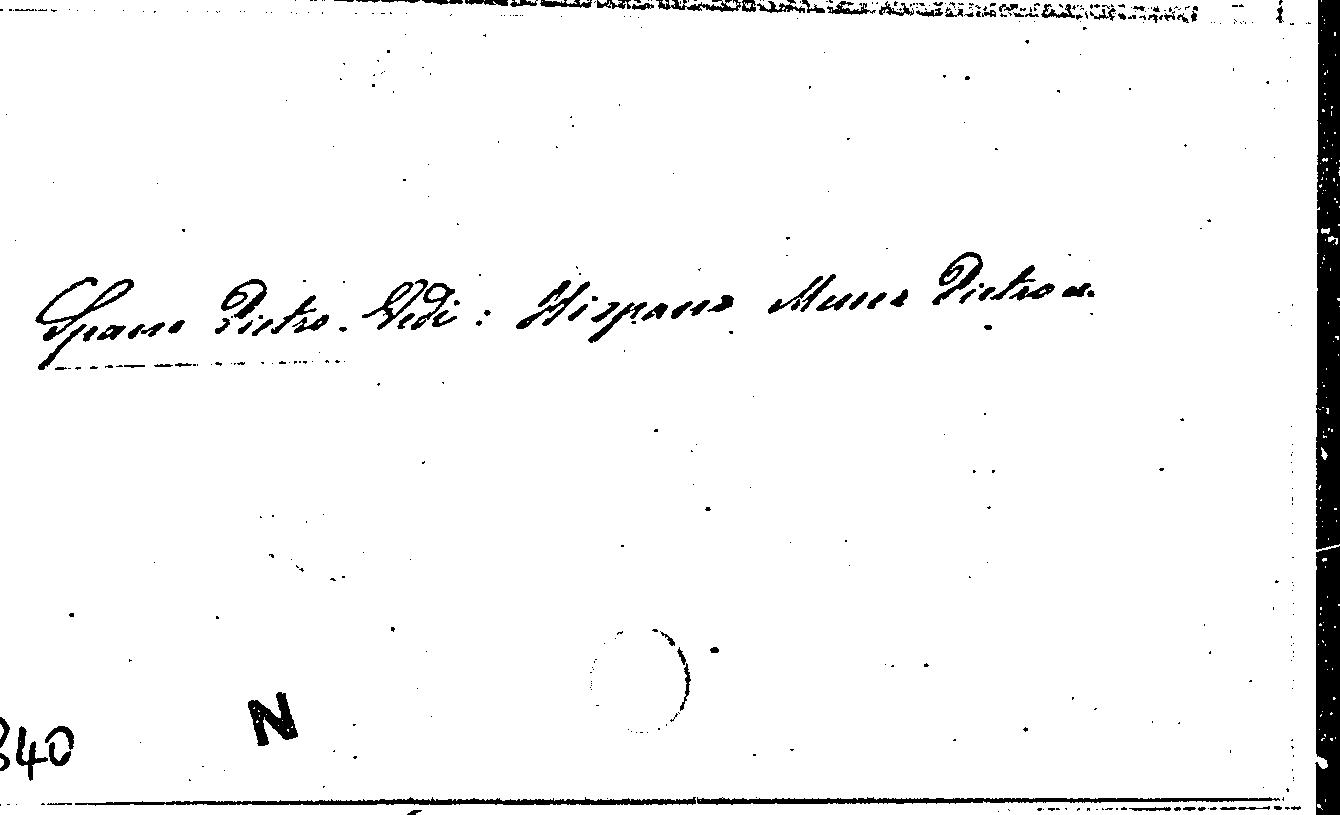 Spano Pietro. Vedi: Hispano Pietro
N
840